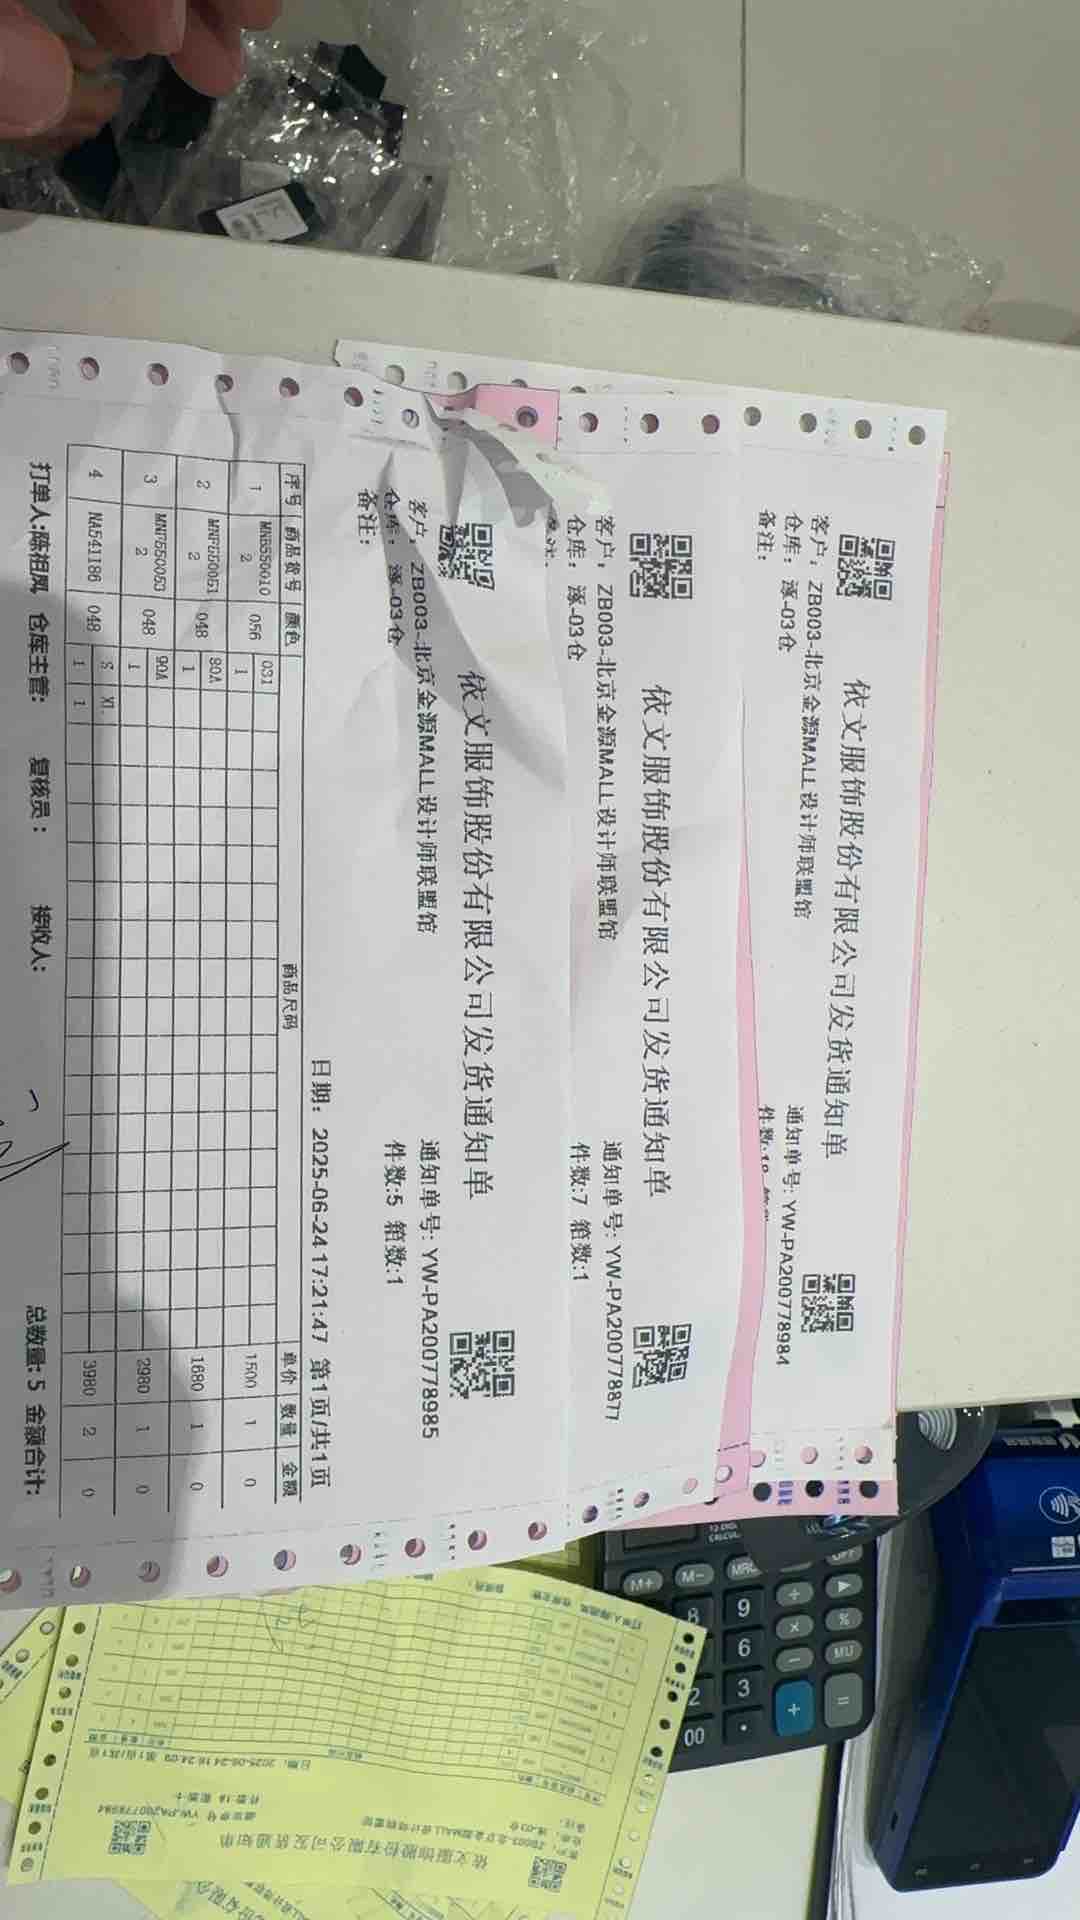 依文服饰股份有限公司发货通知单
客户：ZB003-北京金源MALL设计师联盟馆
通知单号：YW-PA200778984
仓库：涿-03仓
备注：
依文服饰股份有限公司发货通知单
客户：ZB003-北京金源MALL设计师联盟馆
通知单号：YW-PA200778877
仓库：涿-03仓
件数:7 箱数:1
依文服饰股份有限公司发货通知单
客户：ZB003-北京金源MALL设计师联盟馆
通知单号：YW-PA200778985
仓库：涿-03仓
件数:5 箱数:1
备注：
日期：2025-06-24 17:21:47 第1页/共1页
序号 商品货号 颜色 商品尺码 单价 数量 金额
031
1 MNB550010 2 056 1 1500 1 0
80A
2 2 048 1 1680 1 0
90A
3 2 048 1 2980 1 0
S XL
4 NA541186 048 1 1 3980 2 0
打单人:陈祖凤 仓库主管: 复核员: 接收人: 总数量: 5 金额合计:
依文服饰股份有限公司发货通知单
日期：2025-06-24 16:24:09 第1页/共1页
M+ M- MRC OFF
8 9 ÷ ▲
6 × %
2 3 − MU
00 . + =